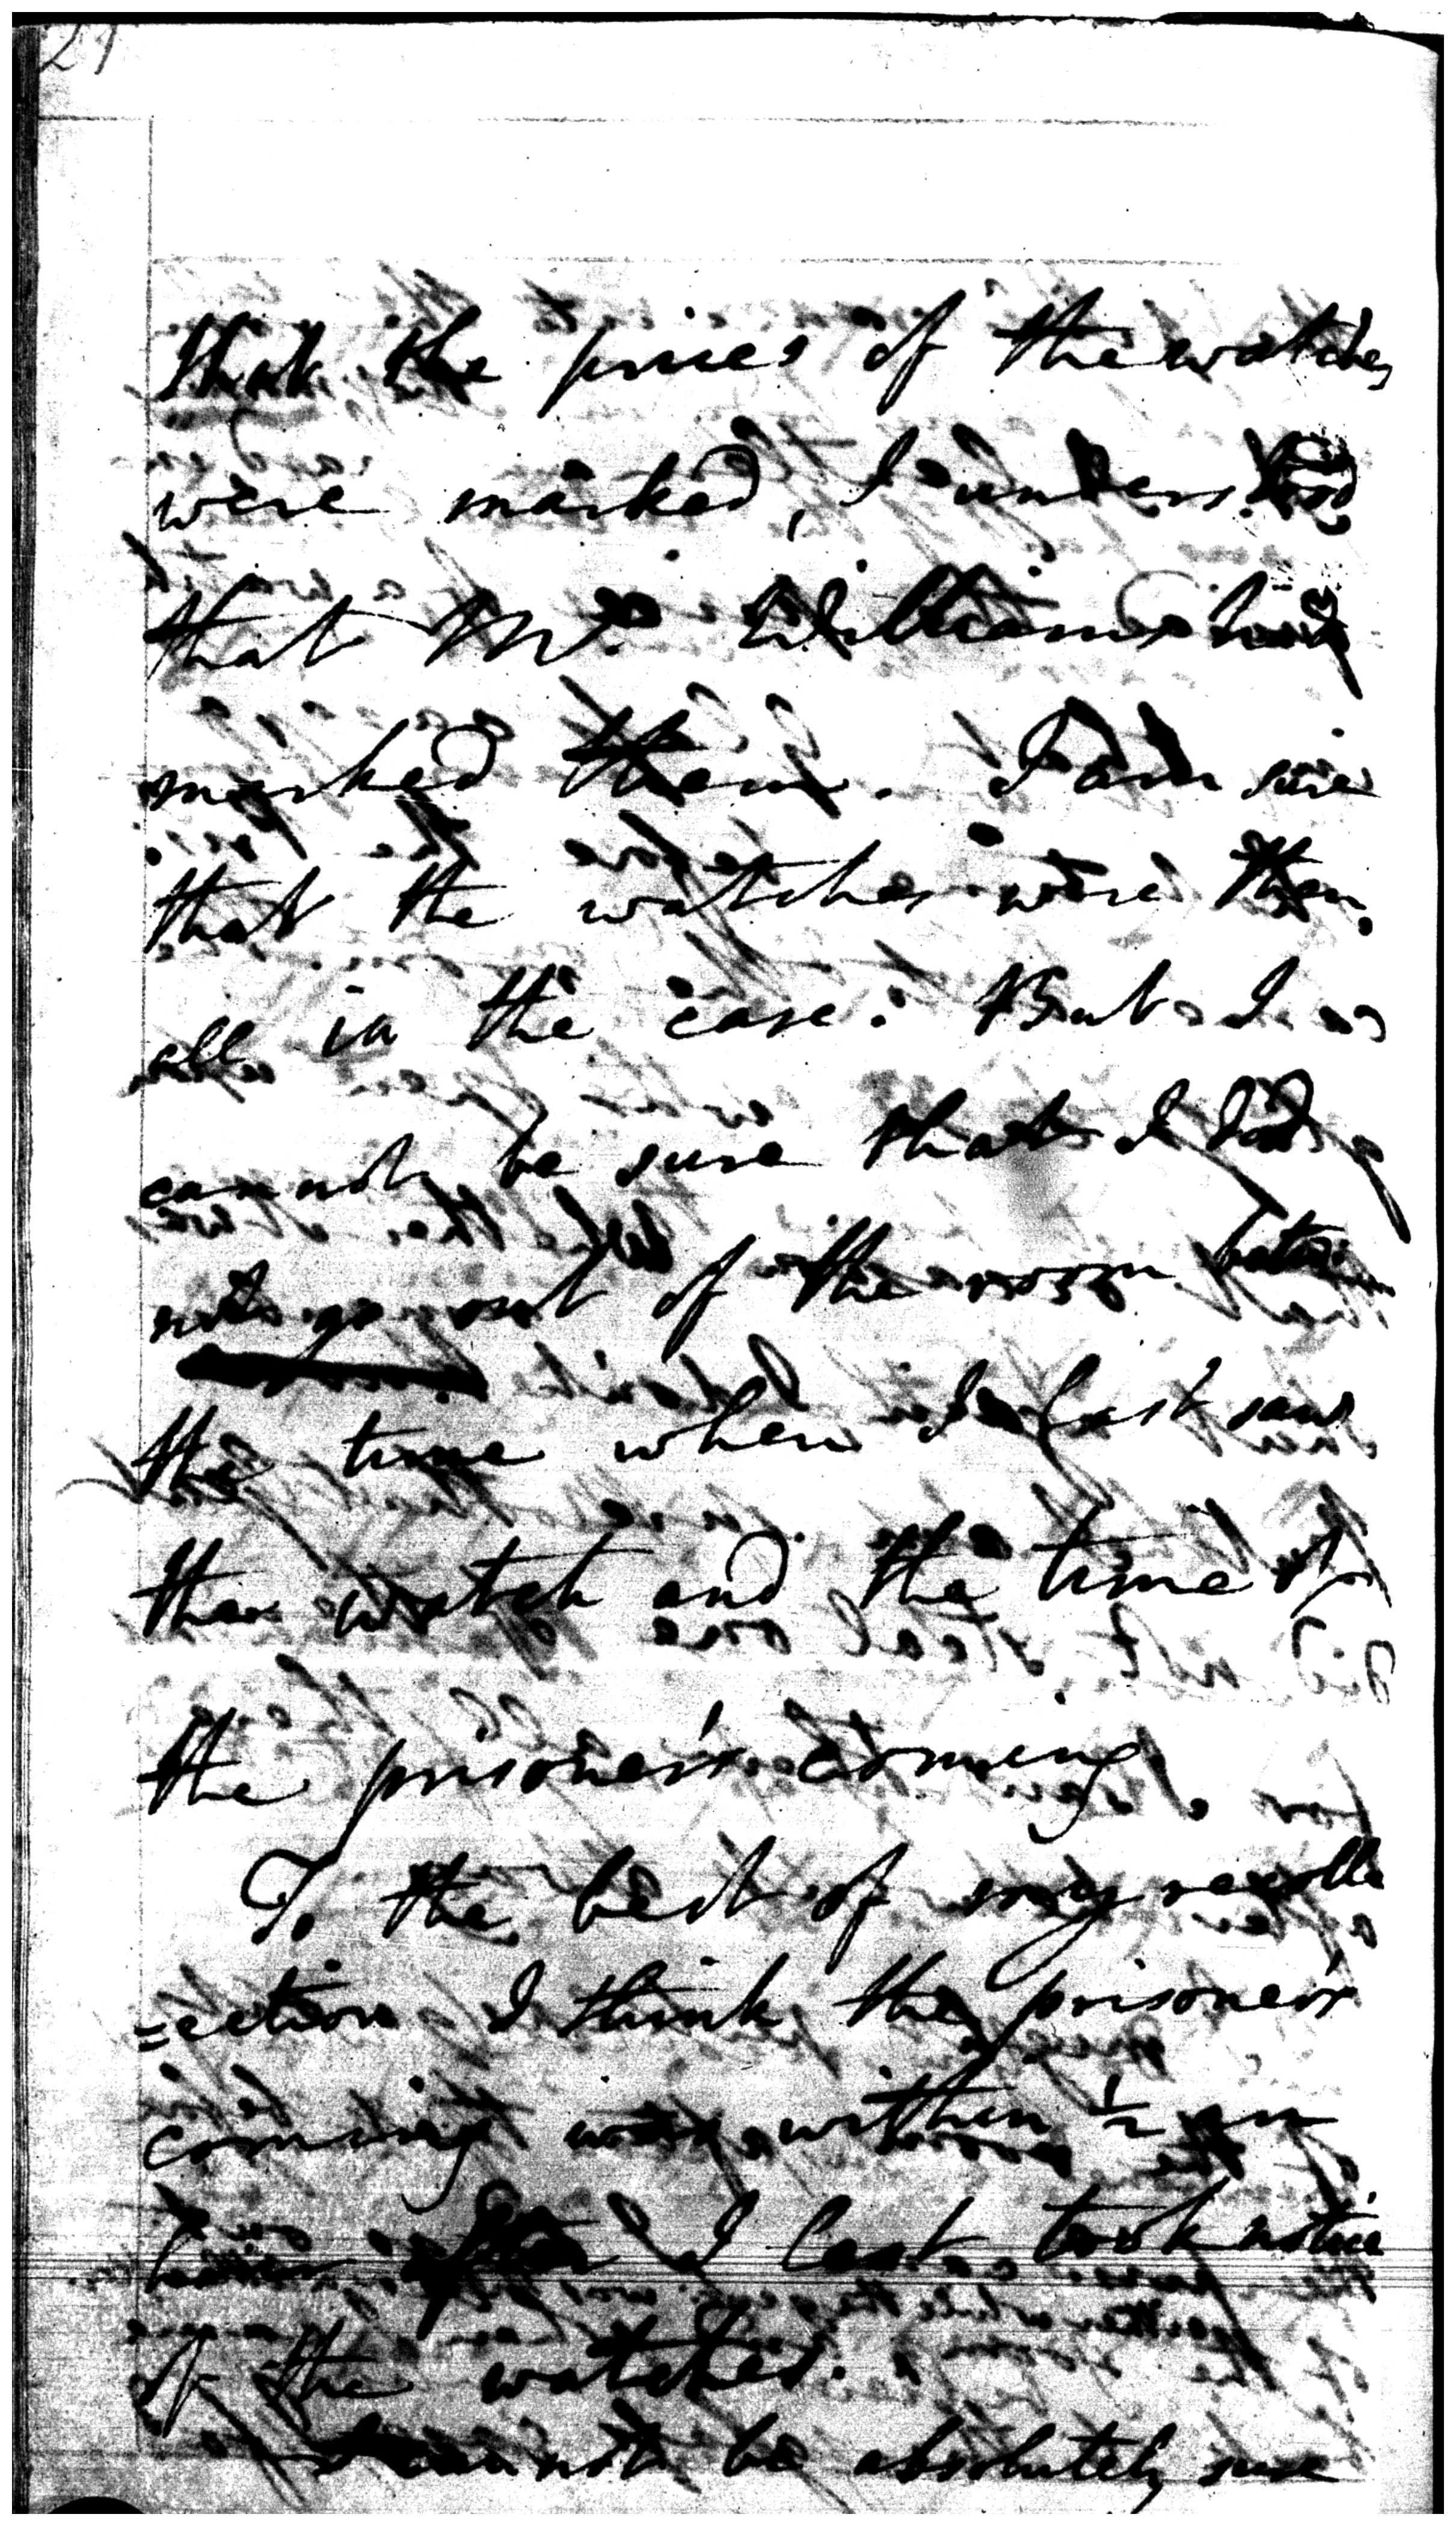 that the prices of the watches
were marked, I understood
that Mr. Williams had
marked them. I am sure
that the watches were then
all in the case. But I
cannot be sure that I did
not go out of the room between
the time when I last saw
the watch and the time of
the prisoner's coming.
To the best of my recolle
=ection I think the prisoner's
coming was within ½ an
hour after I last took notice
of the watches.
I cannot be absolutely sure